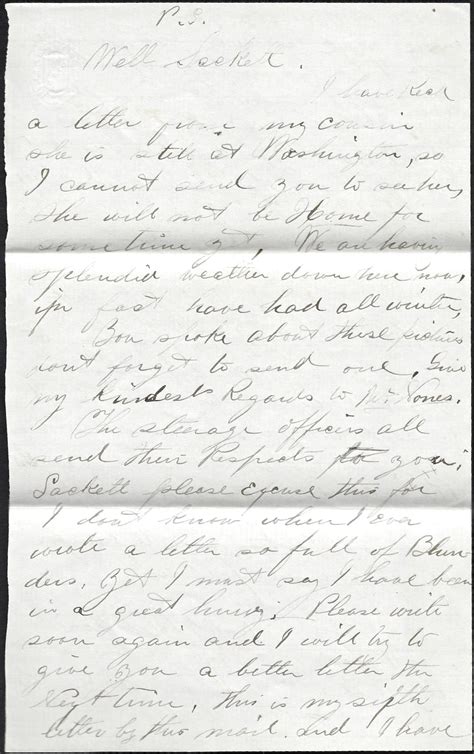 P.S.
Well Sackett.
I have Recd
a letter from my cousin
she is still at Washington, so
I cannot send you to see her,
she will not be Home for
some time yet, We are having
splendid weather down here now,
in fact have had all winter,
You spoke about those pictures
dont forget to send one, Give
my Kindest Regards to Mr Jones.
The steerage officers all
send their Respects to you.
Sackett please excuse this for
I dont know when I ever
wrote a letter so full of Blun
ders, Yet I must say I have been
in a great hurry. Please write
soon again and I will try to
give you a better letter the
next time, this is my sixth
letter by this mail. and I have